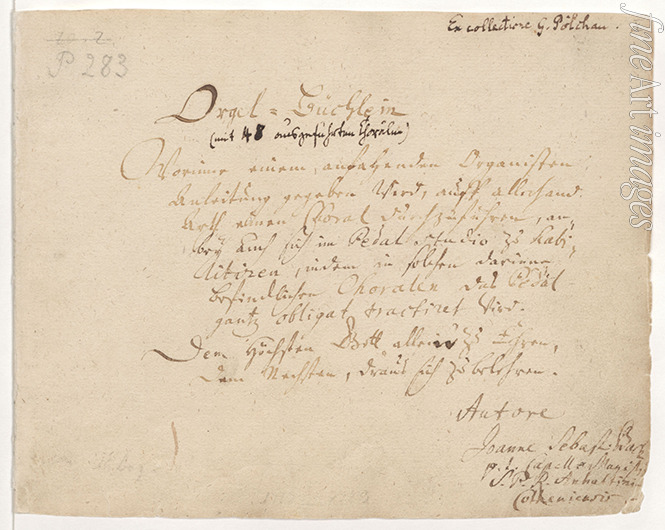 Ex collectione G. Pölchau.
P 283
Orgel-Büchlein
(mit 48 ausgeführten Chorälen)
Worinne einem anfahenden Organisten
Anleitung gegeben wird, auff allerhand
Arth einen Choral durchzuführen, an-
bey auch sich im Pedal studio zu habi-
litiren, indem in solchen darinne
befindlichen Choralen das Pedal
gantz obligat tractiret wird.
Dem Höchsten Gott allein zu Ehren,
Dem Nechsten, draus sich zu belehren.
Autore
Joanne Sebast. Bach
p. t. Capellae Magistri
S. P. R. Anhaltini-
Cotheniensis.
fine Art images